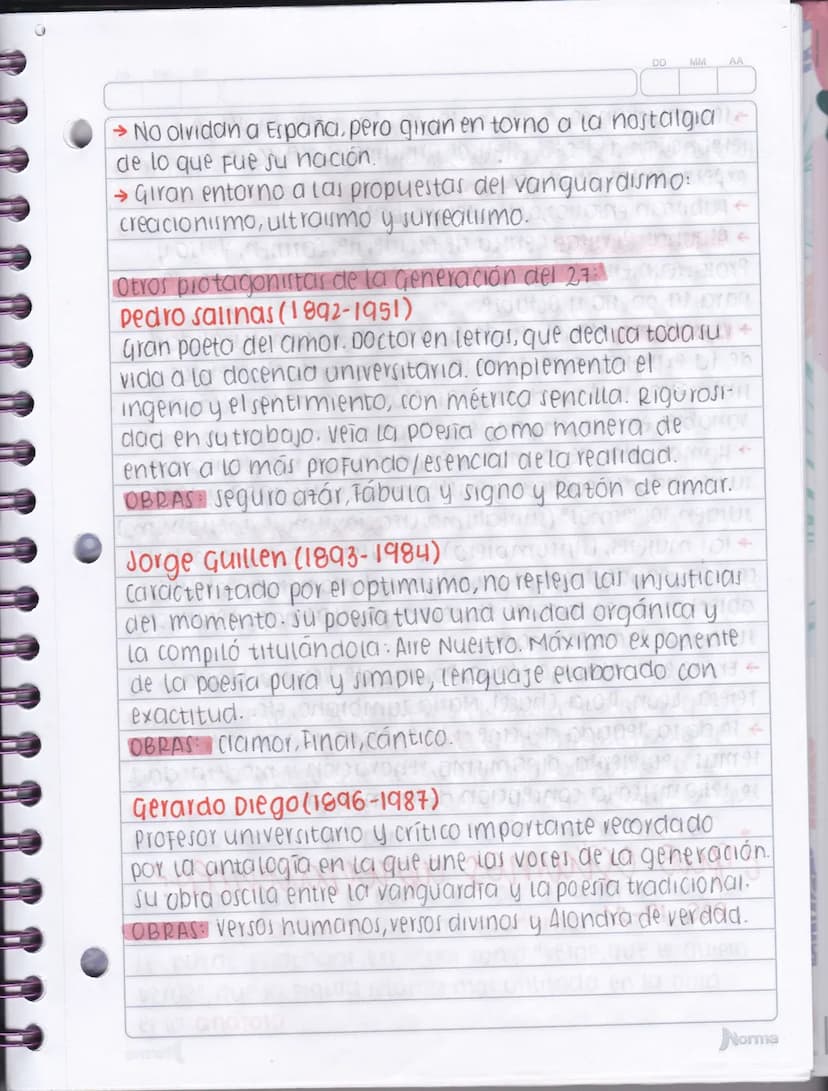 DD MM AA
→ No olvidan a España, pero giran en torno a la nostalgia
de lo que fue su nación.
→ Giran entorno a las propuestas del vanguardismo:
creacionismo, ultraismo y surrealismo.
Otros protagonistas de la Generación del 27:
Pedro Salinas (1892-1951)
Gran poeta del amor. Doctor en letras, que dedica toda su
vida a la docencia universitaria. Complementa el
ingenio y el sentimiento, con métrica sencilla. Rigurosi-
dad en su trabajo. Veía la poesía como manera de
entrar a lo más profundo/esencial de la realidad.
OBRAS: Seguro azár, Fábula y signo y Razón de amar.
Jorge Guillen (1893-1984)
Caracterizado por el optimismo, no refleja las injusticias
del momento. Su poesía tuvo una unidad orgánica y
la compiló titulándola: Aire Nuestro. Máximo exponente
de la poesía pura y simple, lenguaje elaborado con
exactitud.
OBRAS: Clamor, Final, Cántico.
Gerardo Diego (1896-1987)
Profesor universitario y crítico importante recordado
por la antología en la que une las voces de la generación.
Su obra oscila entre la vanguardia y la poesía tradicional.
OBRAS: Versos humanos, versos divinos y Alondra de verdad.
Norma